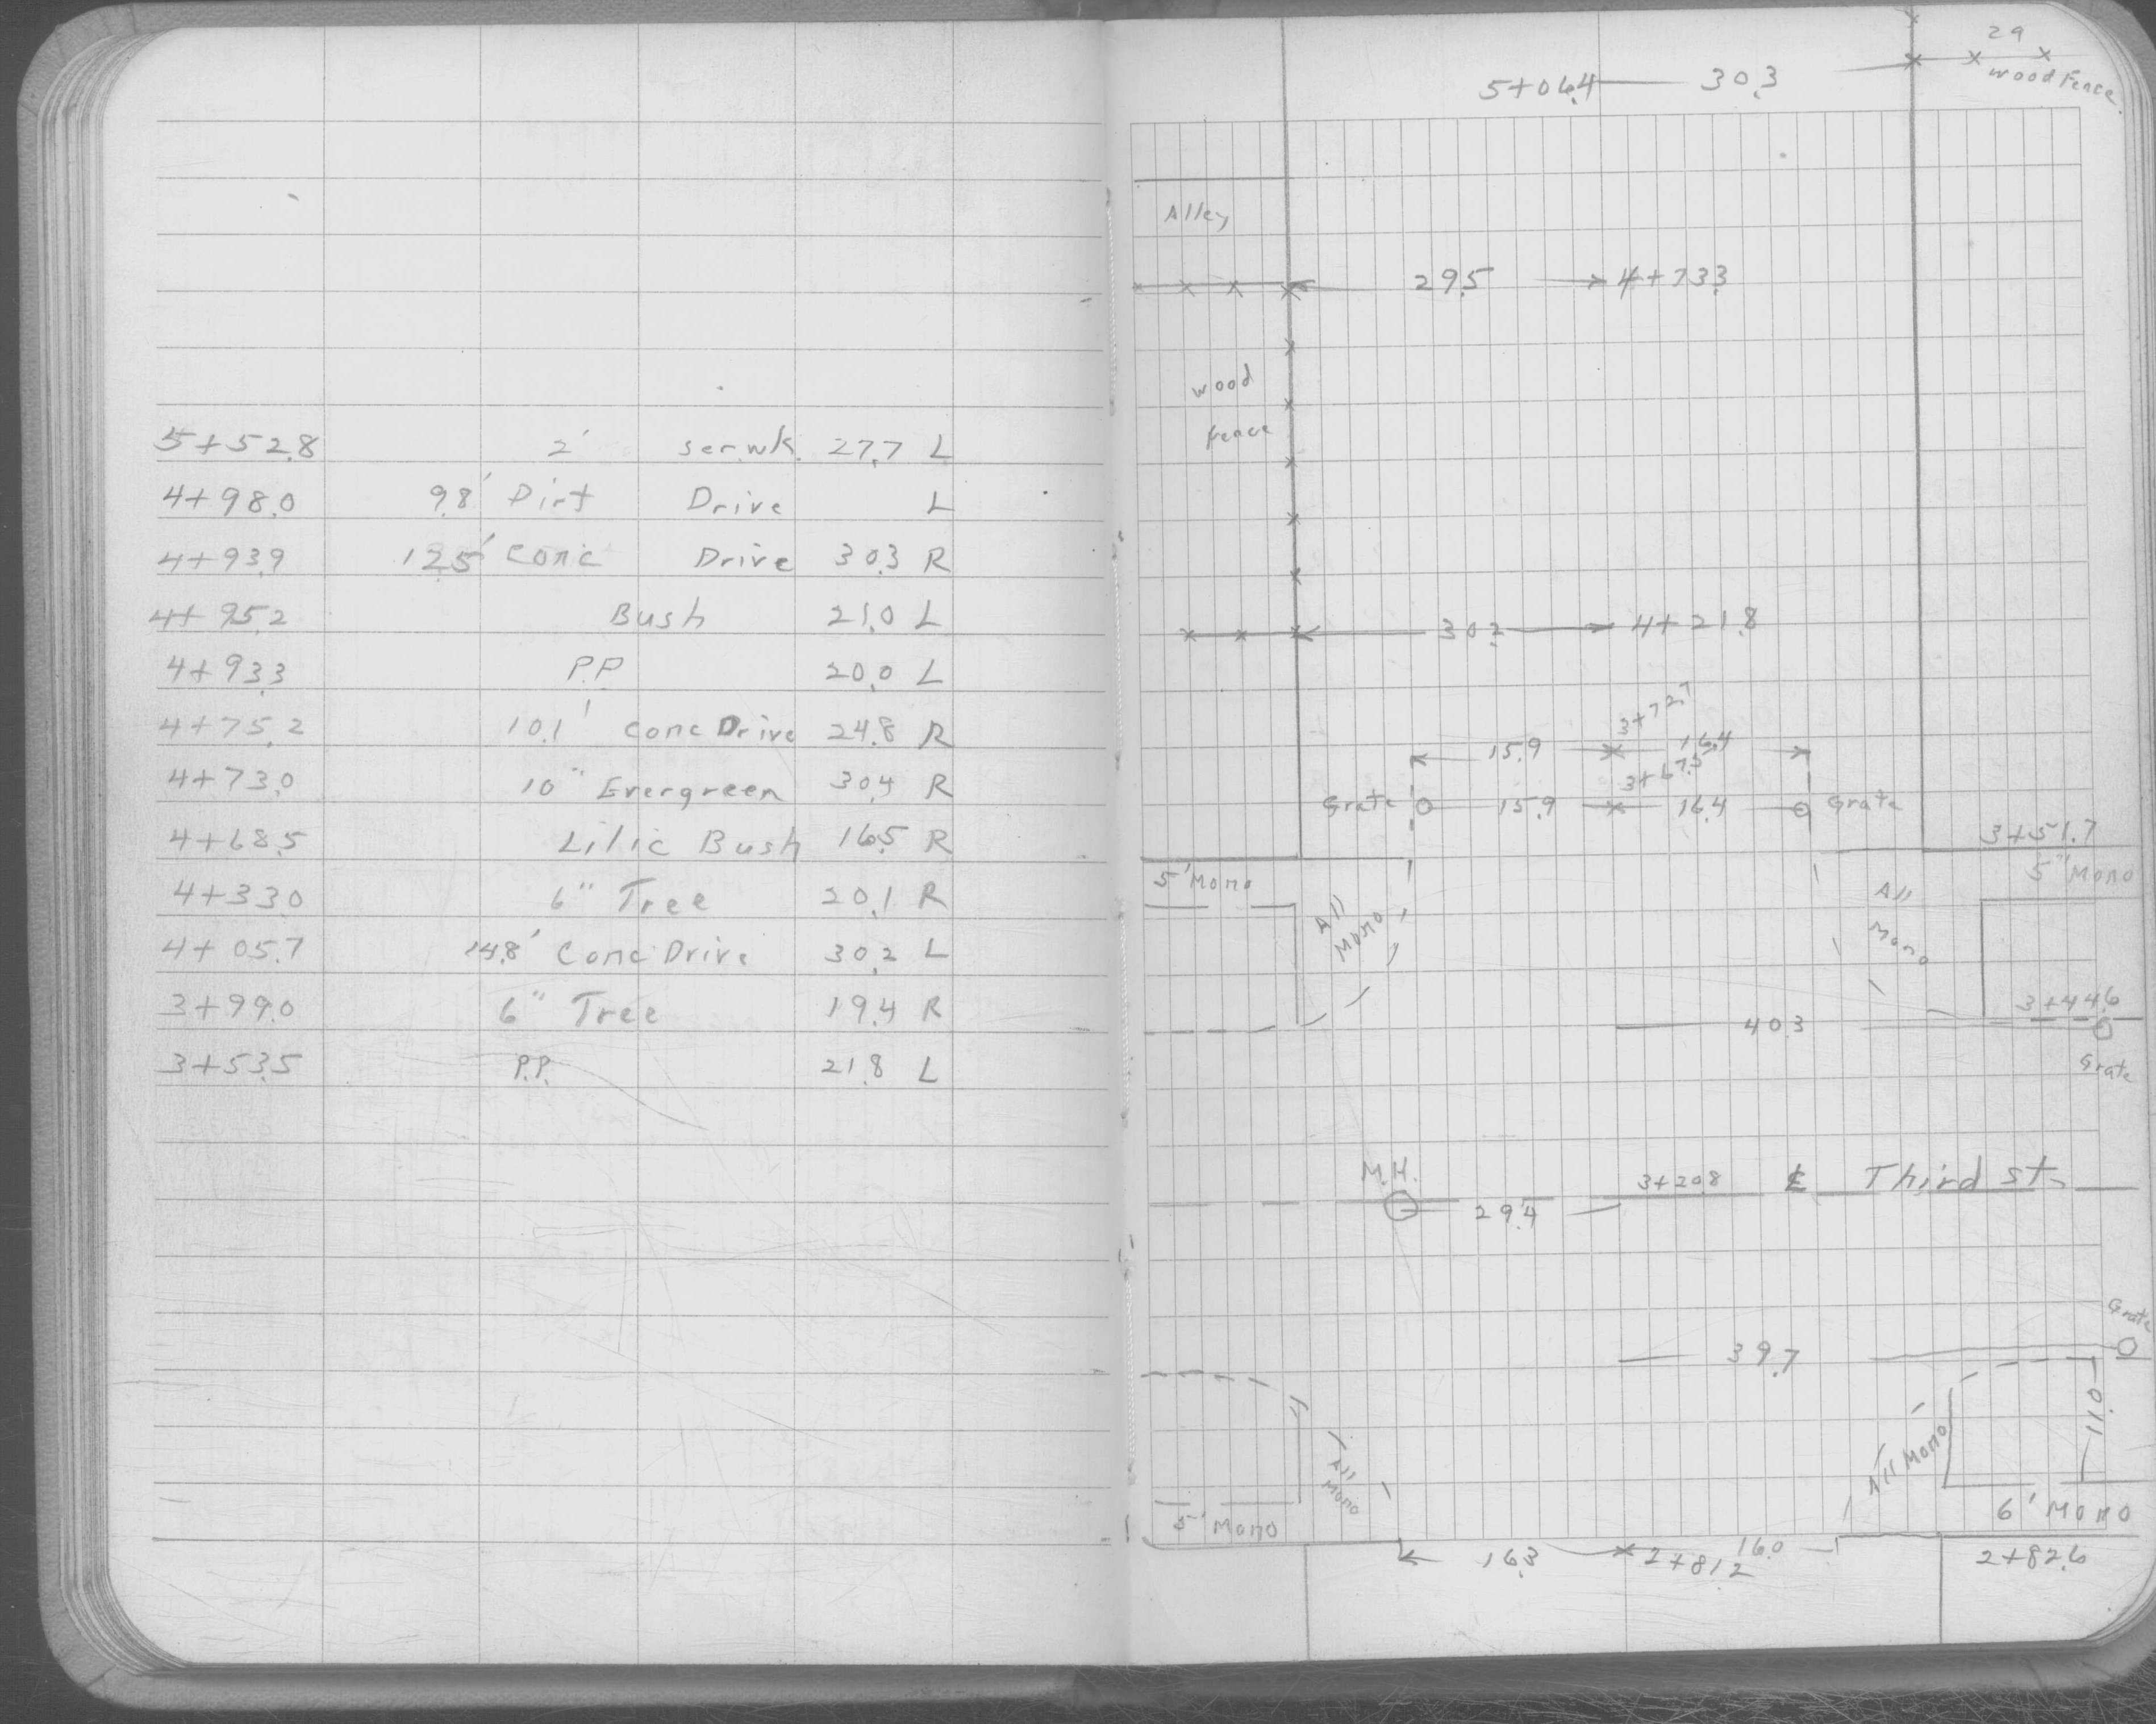 5+52.8 2' ser.wk. 27.7 L
4+98.0 9.8' Dirt Drive L
4+93.9 12.5' Conc Drive 30.3 R
4+95.2 Bush 21.0 L
4+93.3 P.P 20.0 L
4+75.2 10.1' Conc Drive 24.8 R
4+73.0 10" Evergreen 30.4 R
4+68.5 Lilic Bush 16.5 R
4+33.0 6" Tree 20.1 R
4+05.7 14.8' Conc Drive 30.2 L
3+99.0 6" Tree 19.4 R
3+53.5 P.P. 21.8 L
29
5+06.4 30.3 wood Fence
Alley
29.5 4+73.3
wood
Fence
30.2 4+21.8
3+72.7
15.9 16.4
3+67.5
Grate 15.9 16.4 Grate
3+51.7
5' Mono 5" Mono
All
Mono
All
Mono
3+44.6
40.3
Grate
M.H.
3+20.8 ℄ Third St.
29.4
Grate
39.7
11.0
All
Mono
All Mono
5' Mono 6' Mono
16.3 2+81.2 16.0 2+82.6